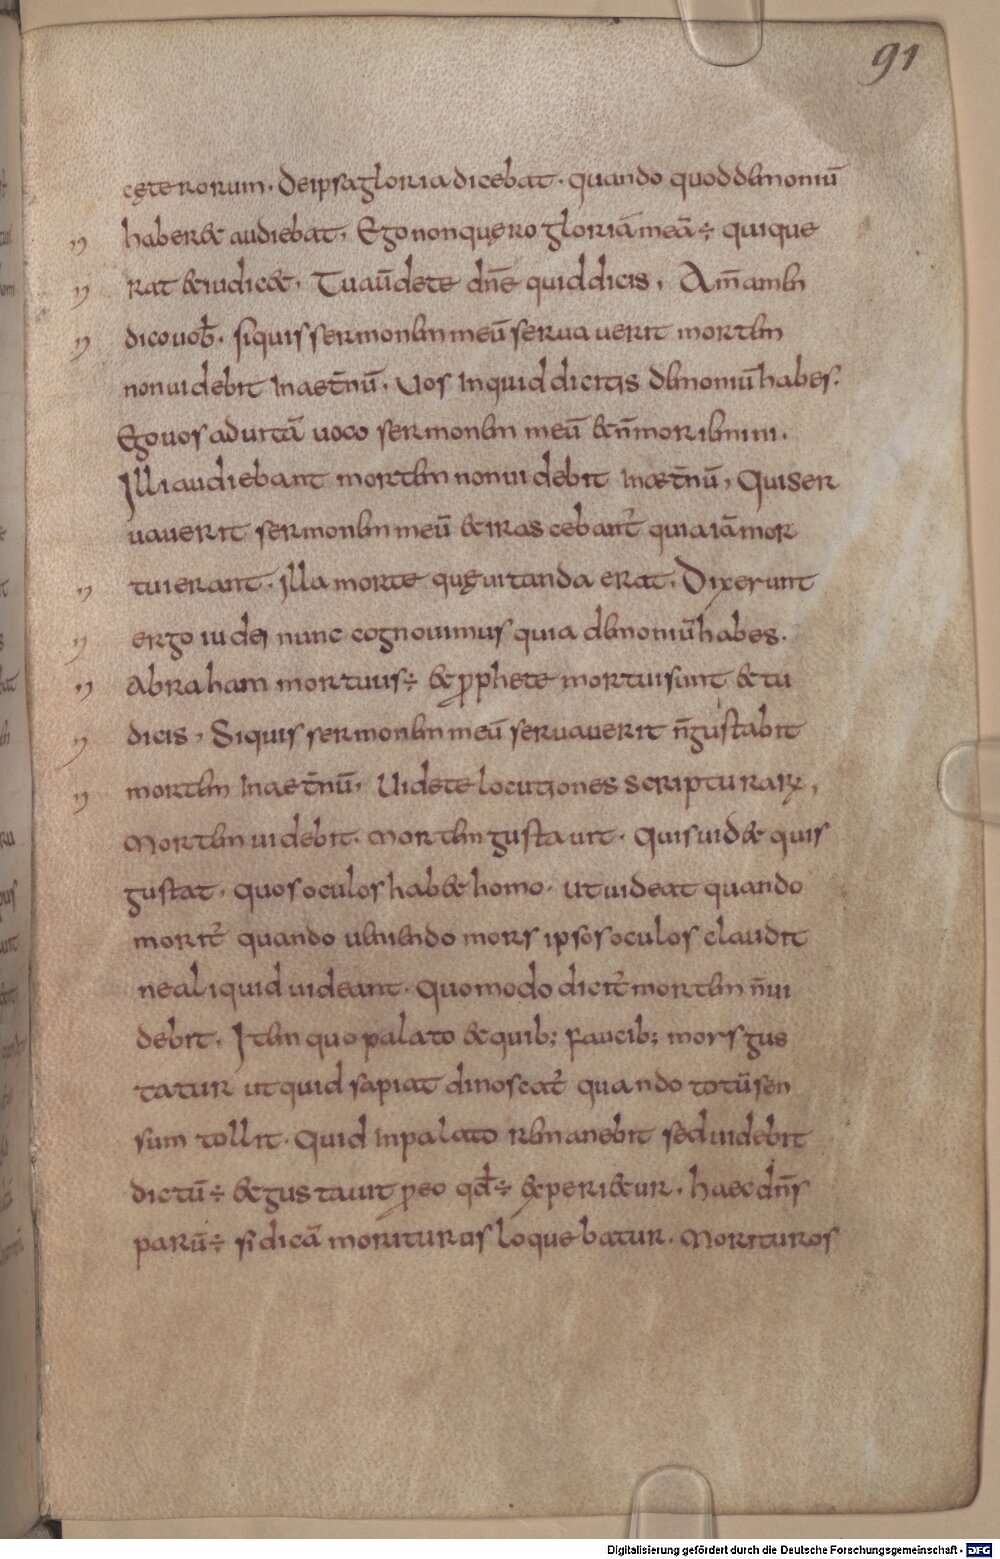 91
cęterorum. Deipsa gloria dicebat. quando quod demoniū
haberet audiebat. Ego non quęro gloriā meā÷ quique
rat & iudic&. Tu aūdete dn̄e quid dicis. Am̄ am̄
dico uob̄. si quis sermonem meū seruauerit mortem
non uidebit in aet̄nū. Vos inquid dicitis demoniū habes.
Ego uos ad uitā uoco sermonem meū & n̄ moriemini.
Illi audiebant mortem non uidebit in aet̄nū, Qui ser
uauerit sermonem meū & irascebant̄ quia iā mor
tui erant. illa morte quę uitanda erat. Dixerunt
ergo iudei nunc cognouimus quia demoniū habes.
Abraham mortuus÷ & p̱phete mortui sunt & tu
dicis, Siquis sermonem meū seruauerit n̄ gustabit
mortem in aet̄nū. Uidete locutiones scripturarꝝ,
Mortem uidebit. Mortem gustauit. Quis uid& quis
gustat. quos oculos hab& homo. ut uideat quando
morit̄ quando ueniendo mors ipsos oculos claudit
ne aliquid uideant. Quomodo dicit̄ mortem n̄ ui
debit. Item quo palato & quib; faucib; mors gus
tatur ut quid sapiat dinoscat̄ quando totū sen
sum tollit. Quid in palato remanebit sed uidebit
dictū÷ & gustauit p̱ eo qđ÷ exp&eri&ur. haec dn̄s
parū÷ si dicā moriturus loquebatur. Morituros
Digitalisierung gefördert durch die Deutsche Forschungsgemeinschaft - DFG